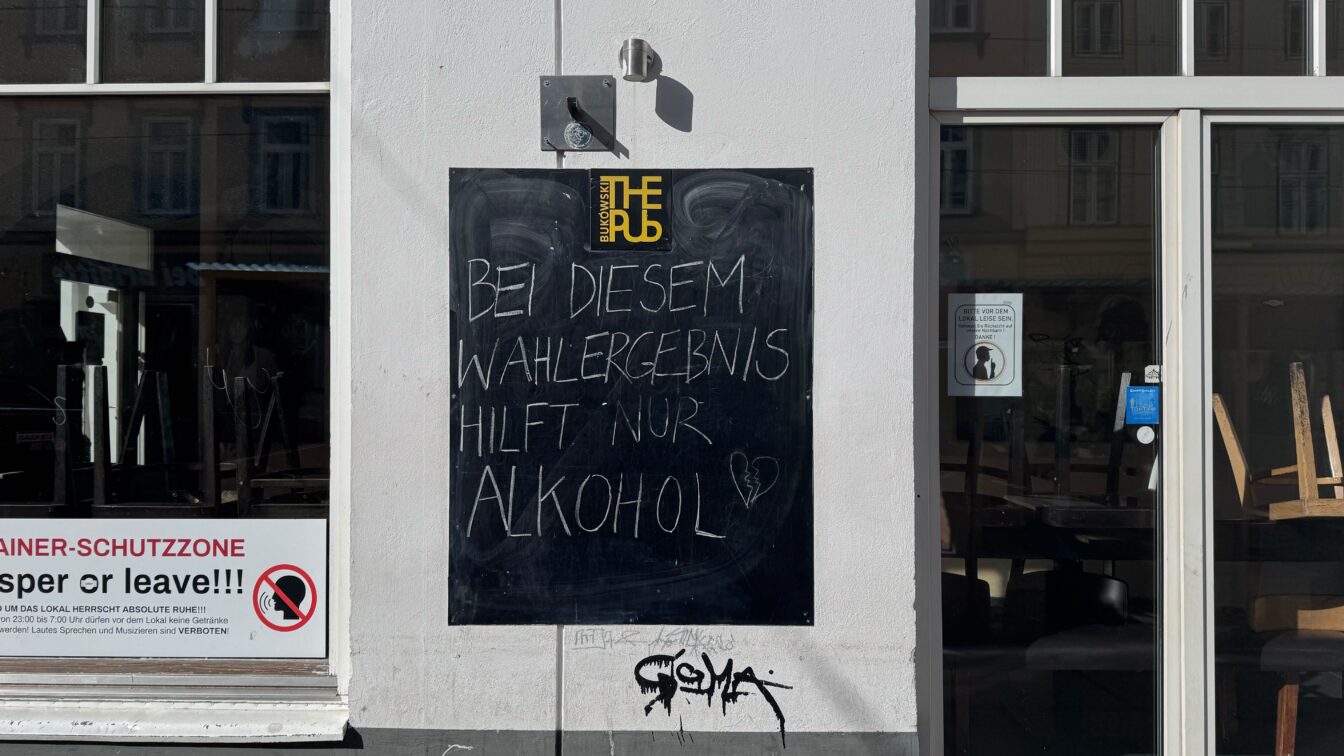 BUKÓWSKI
THE
PUB
BEI DIESEM
WAHLERGEBNIS
HILFT NUR
ALKOHOL
AINER-SCHUTZZONE
sper or leave!!!
UM DAS LOKAL HERRSCHT ABSOLUTE RUHE!!!
von 23:00 bis 7:00 Uhr dürfen vor dem Lokal keine Getränke
werden! Lautes Sprechen und Musizieren sind VERBOTEN!
BITTE VOR DEM
LOKAL LEISE SEIN.
Nehmen Sie Rücksicht auf
unsere Nachbarn!
DANKE!
GOMA